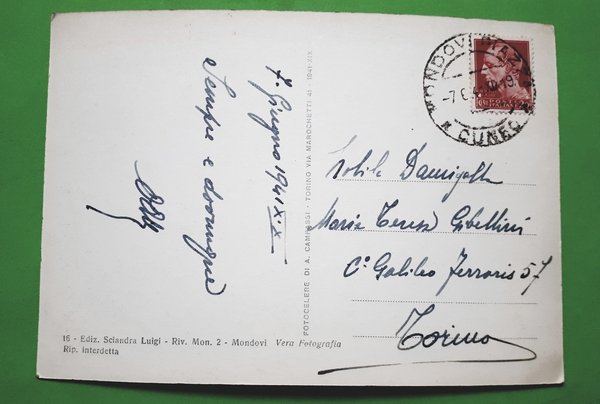 7. Giugno 1941 XIX
Sempre e dovunque
MONDOVI PIAZZA
-7.6.4
CUNEO
POSTE ITALIANE
Nobile Damigella
Maria Teresa Gibellini
C. Galileo Ferraris 57
Torino
FOTOCELERE DI A. CAMPASSI - TORINO VIA MAROCHETTI 41 - 1941-XIX
16 - Ediz. Sciandra Luigi - Riv. Mon. 2 - Mondovì Vera Fotografia
Rip. interdetta